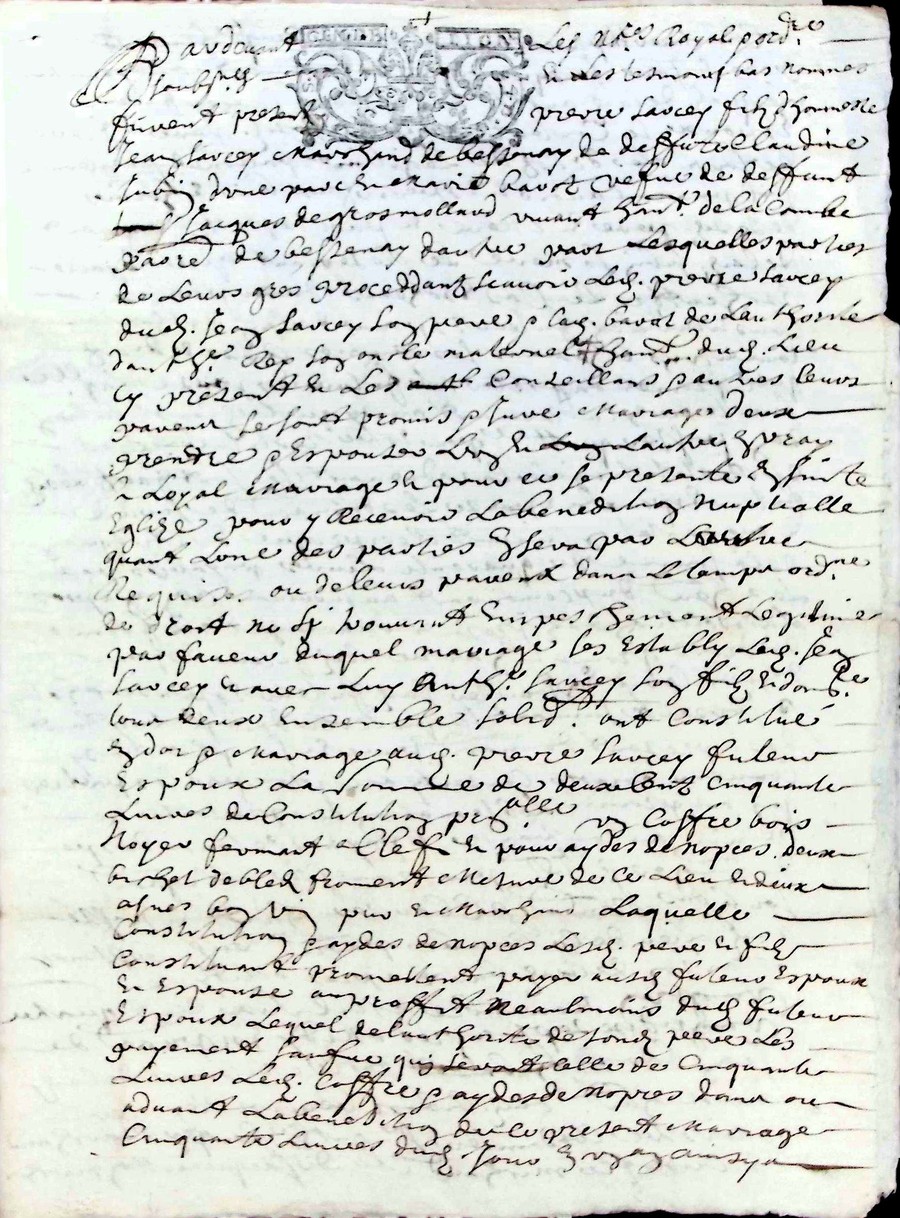 Pardevant Les No.res Royal p ord.re
soubsignes En Les tesmoins bas nommes
furent present pierre sarcey filz d honneste
Jean sarcey Marchand de bessenay de deffunte Claudine
dune par En Marie barot vefue de deffunt
Jacques de grosmolland vivant hant. de la Combe
parr.e de bessenay dautre part Lesquelles parties
de Leurs gres procedantz scauoir Led. pierre sarcey
dud. Jean sarcey son pere & lad. barot de Lauthorité
danth.e Rey son oncle maternel hant. dud. Lieu
Cy present En Les Conseillans & autres leurs
parens se sont promis & Jure Mariage deux
prendre & Espouser Lun En Lautre En vray
& Loyal Mariage & pour ce se presenter En sainte
Eglize pour y Receuoir La benediction Nuptialle
quant Lune des parties En sera par Lautre
Requise ou de leurs parens dans Le temps ord.re
de droit ne sy trouuant Empeschement Legitime
par faueur duquel mariage ses Estably Led. Jean
sarcey & auec Luy Anth.e sarcey son filz &
tous deux Ensemble solid. ont Constitué
en dot & Mariage aud. pierre sarcey futeur
Espoux La somme de deux Cent Cinquante
Liures de Constitution un Coffre bois
Noyer fermant a Clef & pour aydes de nopces deux
bichet de bled froment Mesure de Ce Lieu & deux
asnes bon vin pur & Marchand Laquelle
Constitution & aydes de nopces Lesd. pere & filz
Constituant promettent payer ausd. futeur Espoux
& Espouse au proffit Neaulmoins dud. futeur
Espoux Lequel de lauthorité de sond. pere Les
payement sauoir qui seront Celle de Cinquante
Liures Led. Coffre & aydes de nopces dans ou
aduant La benediction du Ce present Mariage
Cinquante Liures dud. Jour En un an